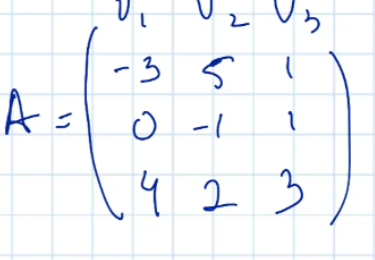 v₁ v₂ v₃
-3 5 1
A = 0 -1 1
4 2 3